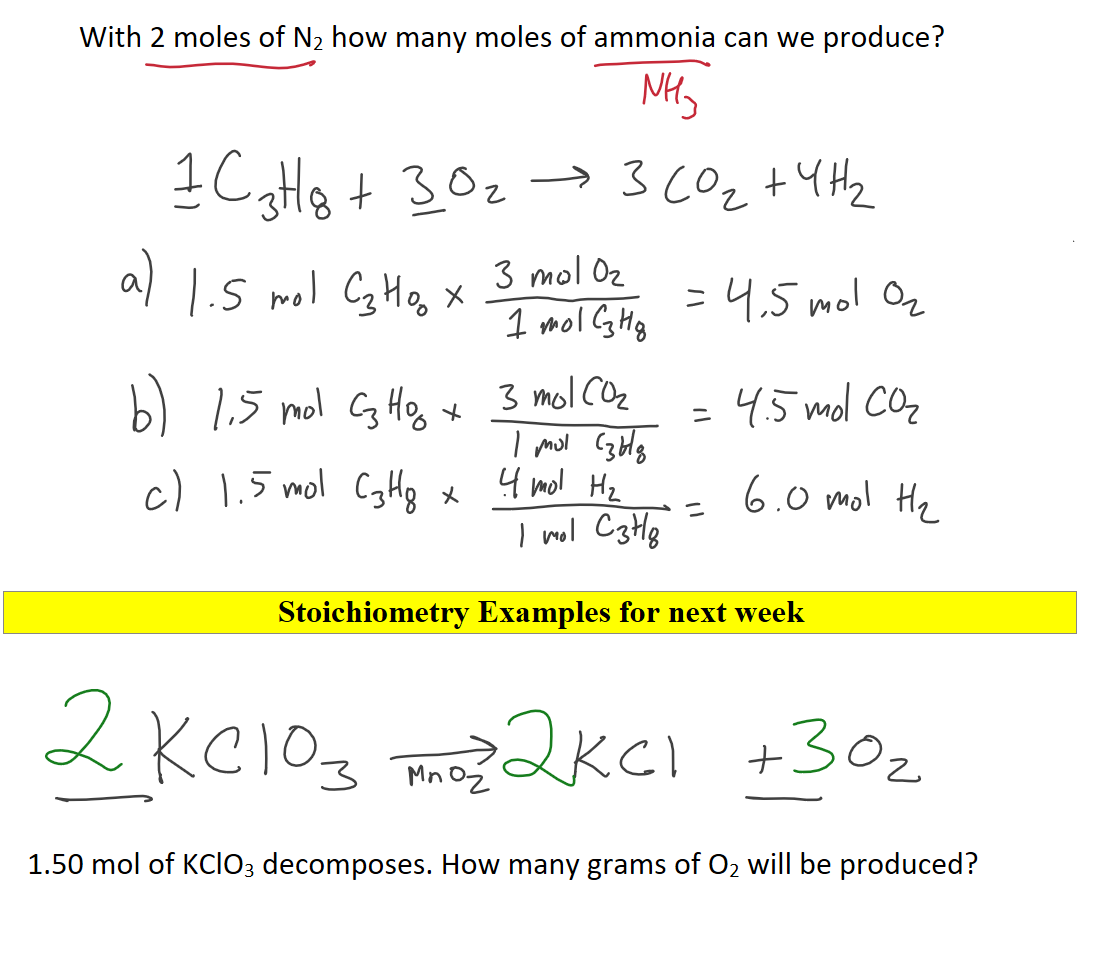 With 2 moles of N₂ how many moles of ammonia can we produce?
NH₃
1C₃H₈ + 3O₂ → 3CO₂ + 4H₂
a) 1.5 mol C₃H₈ x 3 mol O₂ / 1 mol C₃H₈ = 4.5 mol O₂
b) 1.5 mol C₃H₈ x 3 mol CO₂ / 1 mol C₃H₈ = 4.5 mol CO₂
c) 1.5 mol C₃H₈ x 4 mol H₂ / 1 mol C₃H₈ = 6.0 mol H₂
Stoichiometry Examples for next week
2 KClO₃ → 2KCl + 3O₂
MnO₂
1.50 mol of KClO₃ decomposes. How many grams of O₂ will be produced?